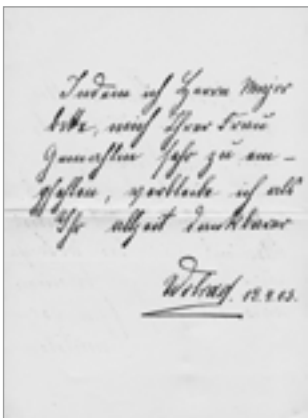 Indem ich Herrn Major
bitte, mich Ihrer Frau
Gemahlin sehr zu em-
pfehlen, verbleibe ich als
Ihr allzeit dankbarer